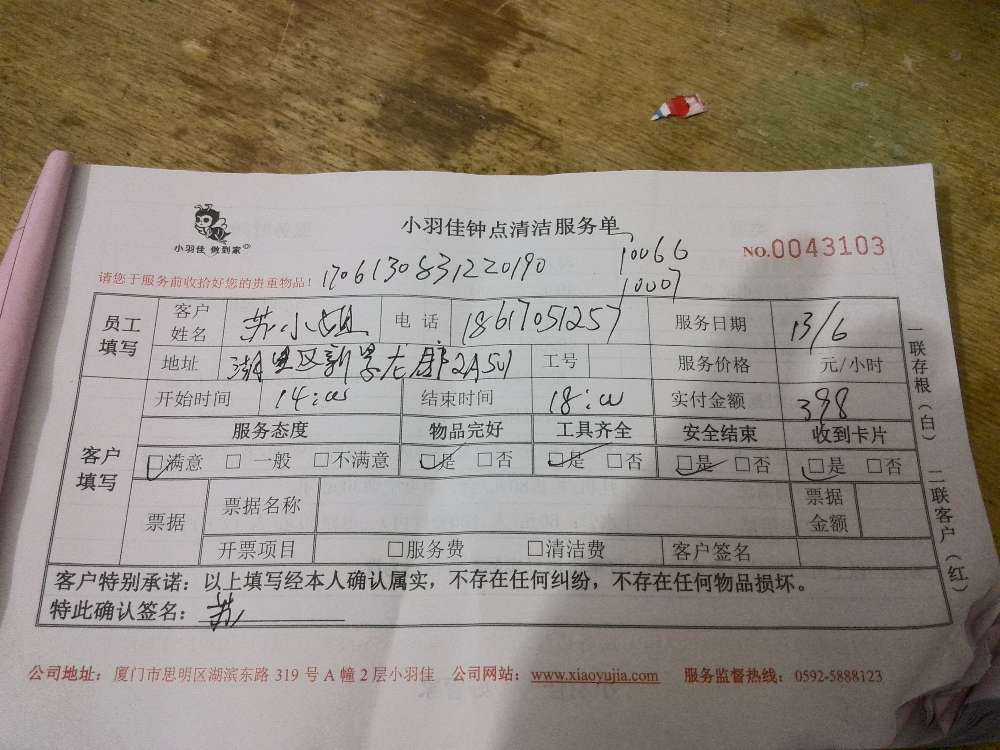 小羽佳 做到家
小羽佳钟点清洁服务单
NO.0043103
请您于服务前收拾好您的贵重物品！
1706130831220190
10066
10007
员工填写 客户姓名 苏小姐 电话 18617051257 服务日期 13/6
地址 湖里区新景龙郡2A501 工号 服务价格 元/小时
客户填写 开始时间 14:00 结束时间 18:00 实付金额 398
服务态度 物品完好 工具齐全 安全结束 收到卡片
☑满意 □一般 □不满意 ☑是 □否 ☑是 □否 ☑是 □否 ☑是 □否
票据 票据名称 票据金额
开票项目 □服务费 □清洁费 客户签名
客户特别承诺：以上填写经本人确认属实，不存在任何纠纷，不存在任何物品损坏。
特此确认签名：苏
一联存根（白） 二联客户（红）
公司地址：厦门市思明区湖滨东路 319 号 A 幢 2 层小羽佳 公司网站：www.xiaoyujia.com 服务监督热线：0592-5888123